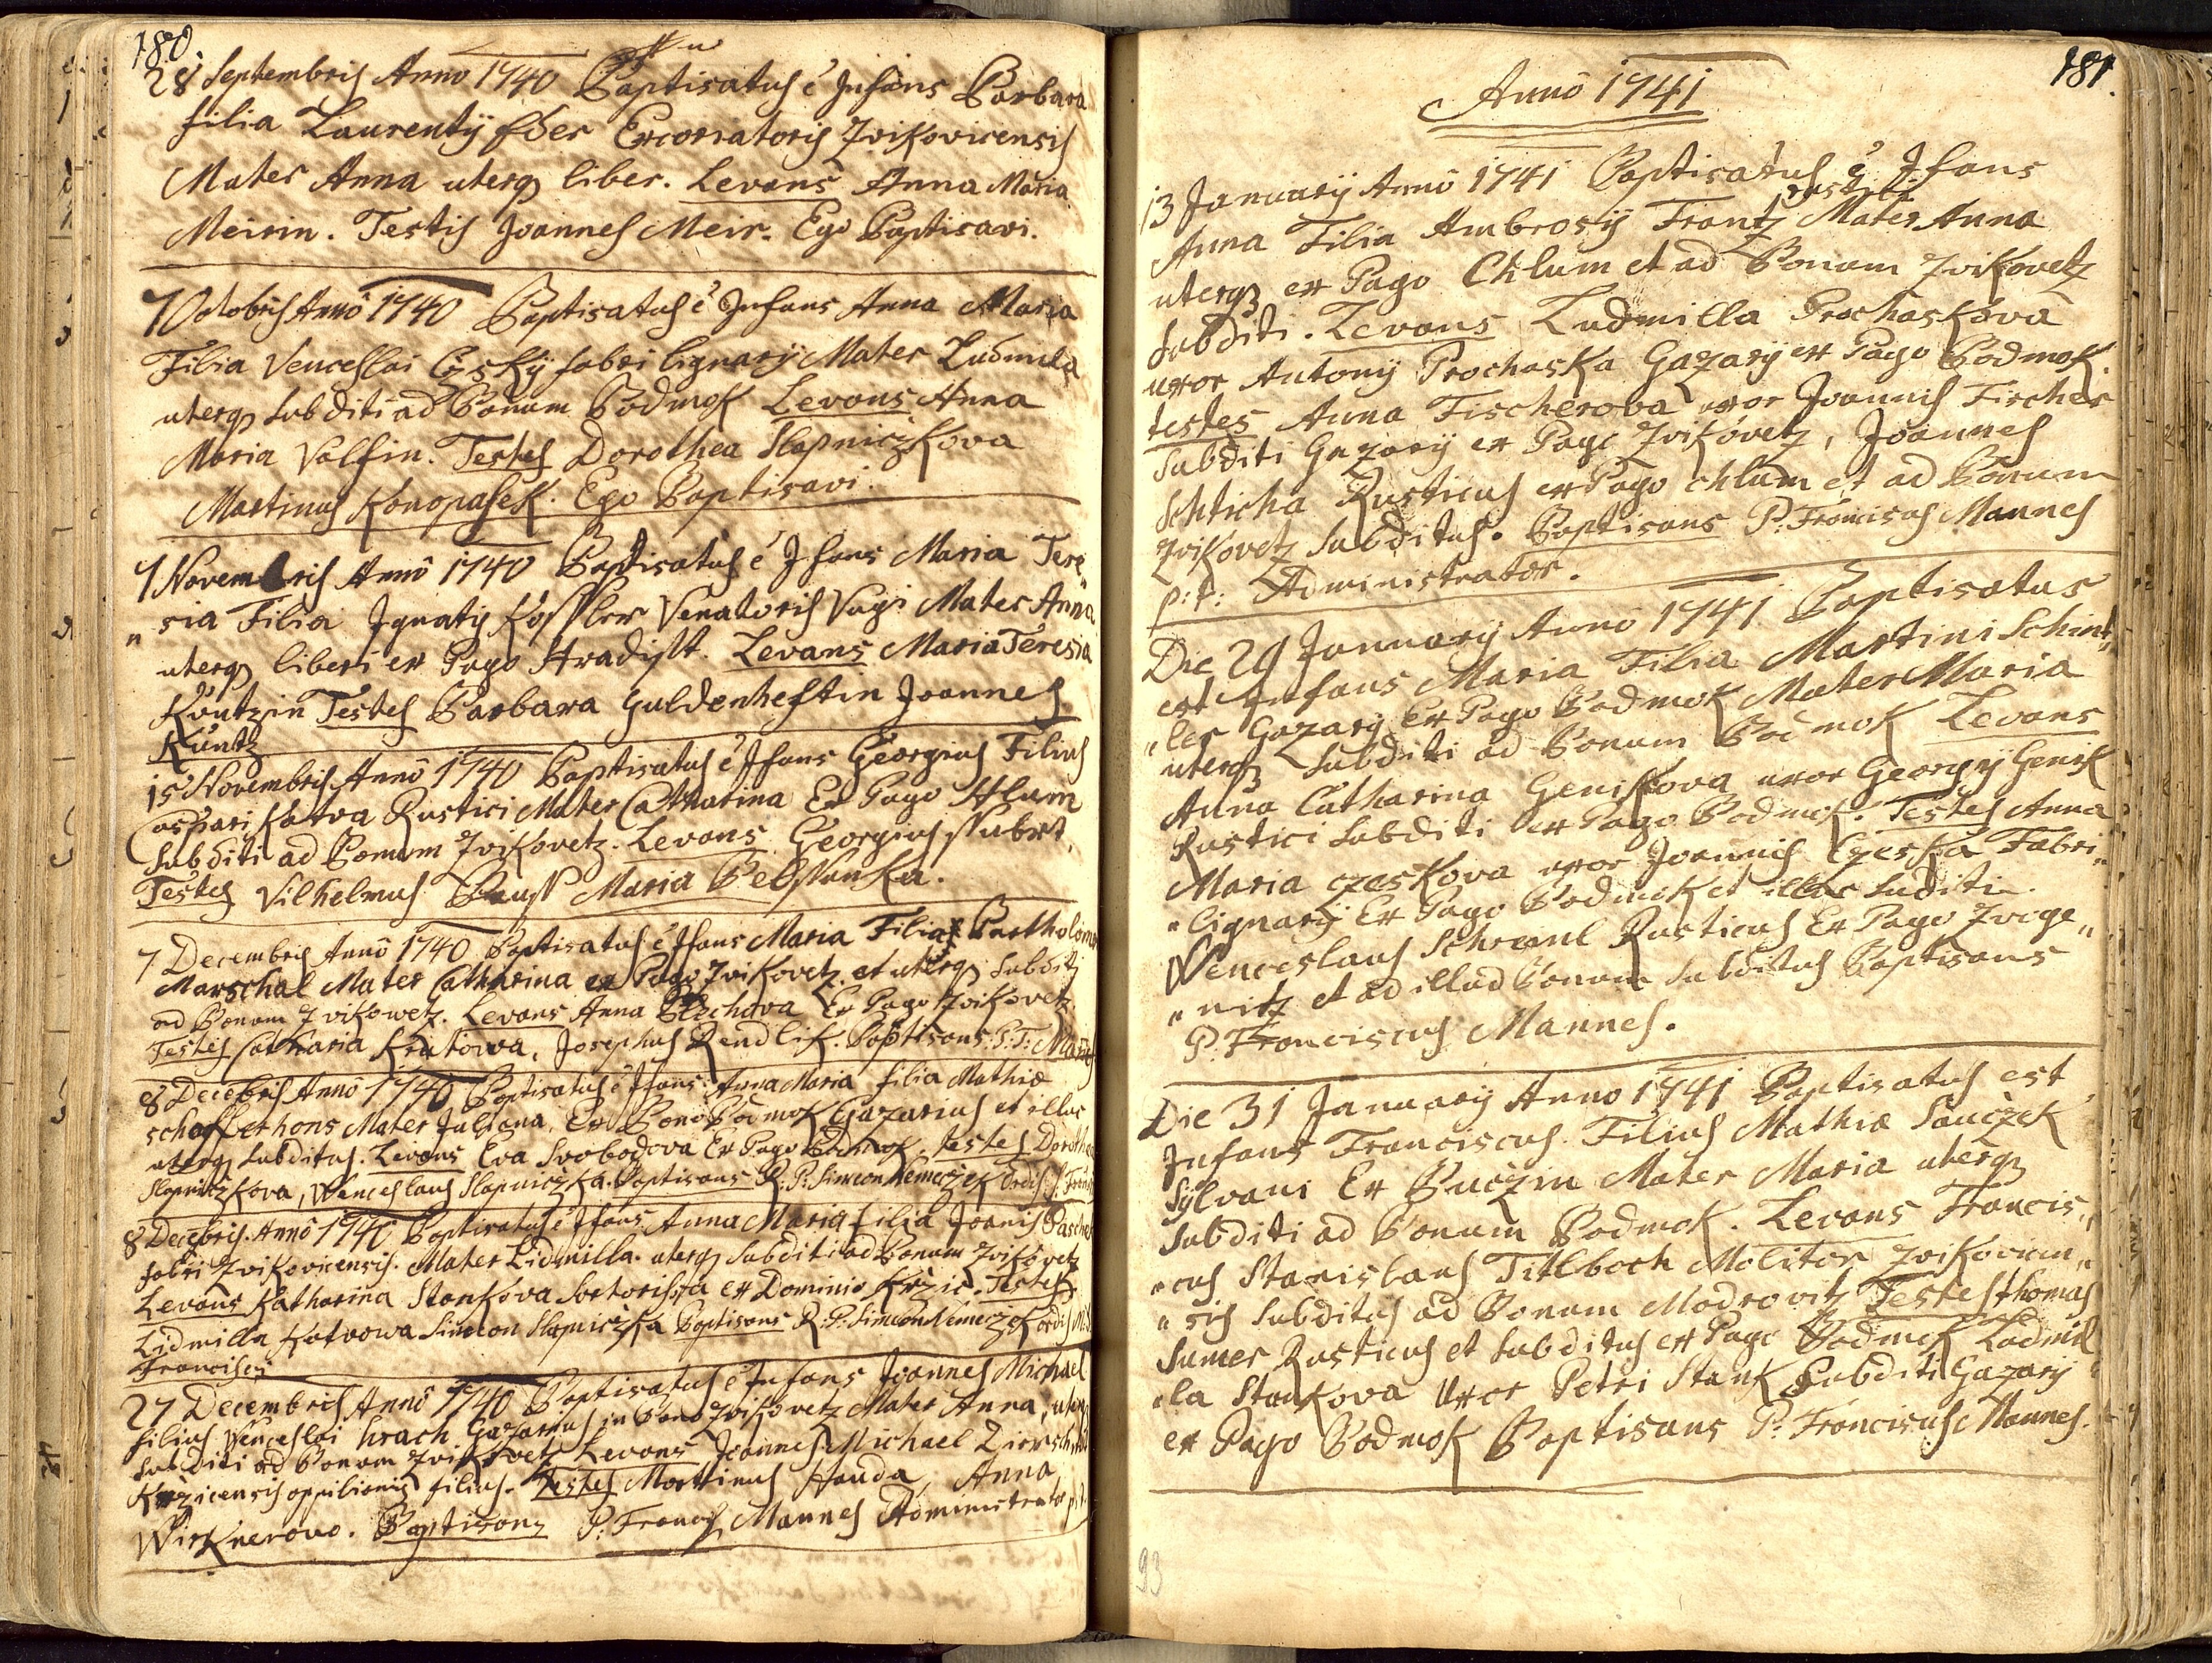 180
28 Septembris Anno 1740 Baptisatus e Infans Barbara
filia Laurentÿ Eder Excoriatoris Zvikovicensis
Mater Anna uterq liber. Levans Anna Maria
Meirin. Testis Joannes Meir. Ego Baptisavi.
7 Octobris Anno 1740 Baptisatus e Infans Anna Maria
Filia Venceslai fabri lignarÿ Mater Ludmila
uterq subditi ad Bonum Podmok Levans Anna
Maria Volfin. Testes Dorothea Slapniczkova
Martinus Konopasek. Ego Baptisavi.
7 Novembris Anno 1740 Baptisatus e Ifans Maria Tere„
„sia Filia Ignatÿ Venatoris Vagi Mater Anna
uterq liberi ex Pago Hradisst. Levans Maria Teresia
Kuntzin Testes Barbara Guldenheftin Joannes
Kuntz
15 Novembris Anno 1740 Baptisatus e Ifans Georgius Filius
Caspari Katva Rustici Mater Catharina Ex Pago Hlum
Subditi ad Bonum Zvikovetz. Levans Georgius
Testes Vilhelmus Maria
7 Decembris Anno 1740 Baptisatus e Ifans Maria Filia Bartholomei
Marschal Mater Catharina ex Pago Zvikovetz et uterq subditi
ad Bonum Zvikowetz. Levans Anna Plechova Ex Pago Zvikovetz
Testes Catharia Krutowa, Josephus Rendlik. Baptisans: P:T: Mannes
8 Decebris Anno 1740 Baptisatus e Ifans Anna Maria filia Mathiæ
schaffethons Mater Juliana, Ex Bono Podmok Gazarius et illac
uterq subditus. Levans Eva Svobodova Ex Pago Podmok, testes Dorothea
Slapniczkova, Wenceslaus Slapniczka. Baptisans R: P: Simeon Nemeczek Ordis: S. Franc
8 Decebris. Anno 1740 Baptisatus e Ifans Anna Maria filia Joanis Paschek
fabri Zvikovicensis. Mater Lidmilla. uterq subditi ad Bonum Zvikovetz
Levans Katharina Stankova Sartorissa ex Dominio Krzic. Testes
Lidmilla Katvowa Simeon Slapniczka Baptisans R: P: Simeon Nemeczek ordis
Francisci
27 Decembris Anno 1740 Baptisatus e Infans Joannes Michael
filius Wenceslai hrach Gazarius in Bono Zvikovetz Mater Anna, uterq
subditi ad Bonum Zvikovetz Levans Joannes Michael
Krzicensis oppilionis filius. Testes Martinus Hauda, Anna
Wirknerovo. Baptisans P: Franc: Mannes Administrator p.t.
181.
Anno 1741
13 Januarÿ Anno 1741 Baptisatus e Ifans
rustici
Anna Filia Ambrosÿ Frantz Mater Anna
uterq ex Pago Chlum et ad Bonum Zvikovetz
subditi. Levans Ludmilla Prochaskova
uxor Antonÿ Prochaska Gazarÿ ex Pago Podmok.
testes Anna Fischerova uxor Joannis Fircher
subditi Gazarÿ ex Pago Zvikovetz, Joannes
Schticha Rusticus ex Pago chlum et ad Bonum
Zvikovetz subditus. Baptisans P: Franciscus Mannes
p:t: Administrator.
Die 29 Januarÿ Anno 1741 Baptisatus
est Infans Maria Filia Martini Schint„
„ler Gazarÿ Ex Pago Podmok Mater Maria
uterq subditi ad Bonum Podmok Levans
Anna Catharina Genikova uxor Georgÿ Genik
Rustici subditi ex Pago Podmok. Testes Anna
Maria czeskova uxor Joannis Czeska Fabri„
„lignarÿ Ex Pago Podmok et illac suditi.
Wenceslaus Schraml Rusticus Ex Pago Zvoge„
„nitz et ad illud Bonum subditus Baptisans
P: Franciscus Mannes.
Die 31 Januarÿ Anno 1741 Baptisatus est
Infans Franciscus Filius Mathiæ Sauczek
Sylvani Ex Buczin Mater Maria uterq
subditi ad Bonum Podmok. Levans Francis„
„cus Stanislaus Titlboch Molitor Zvikovicen„
„sis subditus ad Bonum Modrovitz Testes thomas
Sumer Rusticus et subditus ex Pago Podmok Ludmil
„la Stankova Uxor Petri Stank subditi Gazarÿ
ex Pago Podmok Baptisans P: Franciscus Mannes.
93